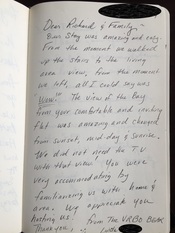 Dear Richard & Family,-
Our Stay was amazing and easy.
From the moment we walked
up the stairs to the living
area view, from the moment
we left, all I could say was
"Wow"! The view of the Bay
from your comfortable and inviting
flat was amazing and changed
from sunset, mid-day & sunrise.
We did not need the T.V
with that view. You were
very accommodating by
familiarizing us with home &
area. We appreciate you
hosting us. from The VRBO Book
Thank you,